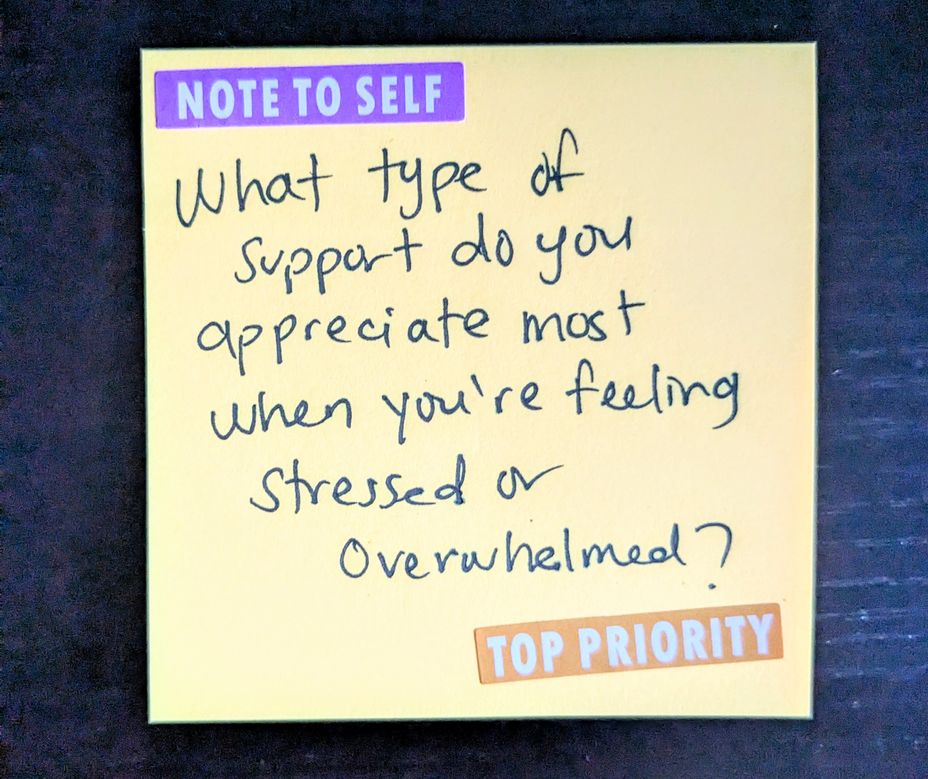 NOTE TO SELF
What type of
support do you
appreciate most
when you're feeling
stressed or
overwhelmed?
TOP PRIORITY